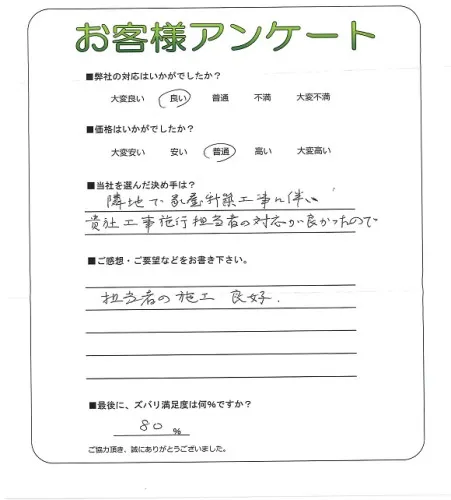 お客様アンケート
■弊社の対応はいかがでしたか？
大変良い 良い 普通 不満 大変不満
■価格はいかがでしたか？
大変安い 安い 普通 高い 大変高い
■当社を選んだ決め手は？
隣地で家屋新築工事に伴い
貴社工事施行担当者の対応が良かったので
■ご感想・ご要望などをお書き下さい。
担当者の施工 良好.
■最後に、ズバリ満足度は何%ですか？
80 %
ご協力頂き、誠にありがとうございました。